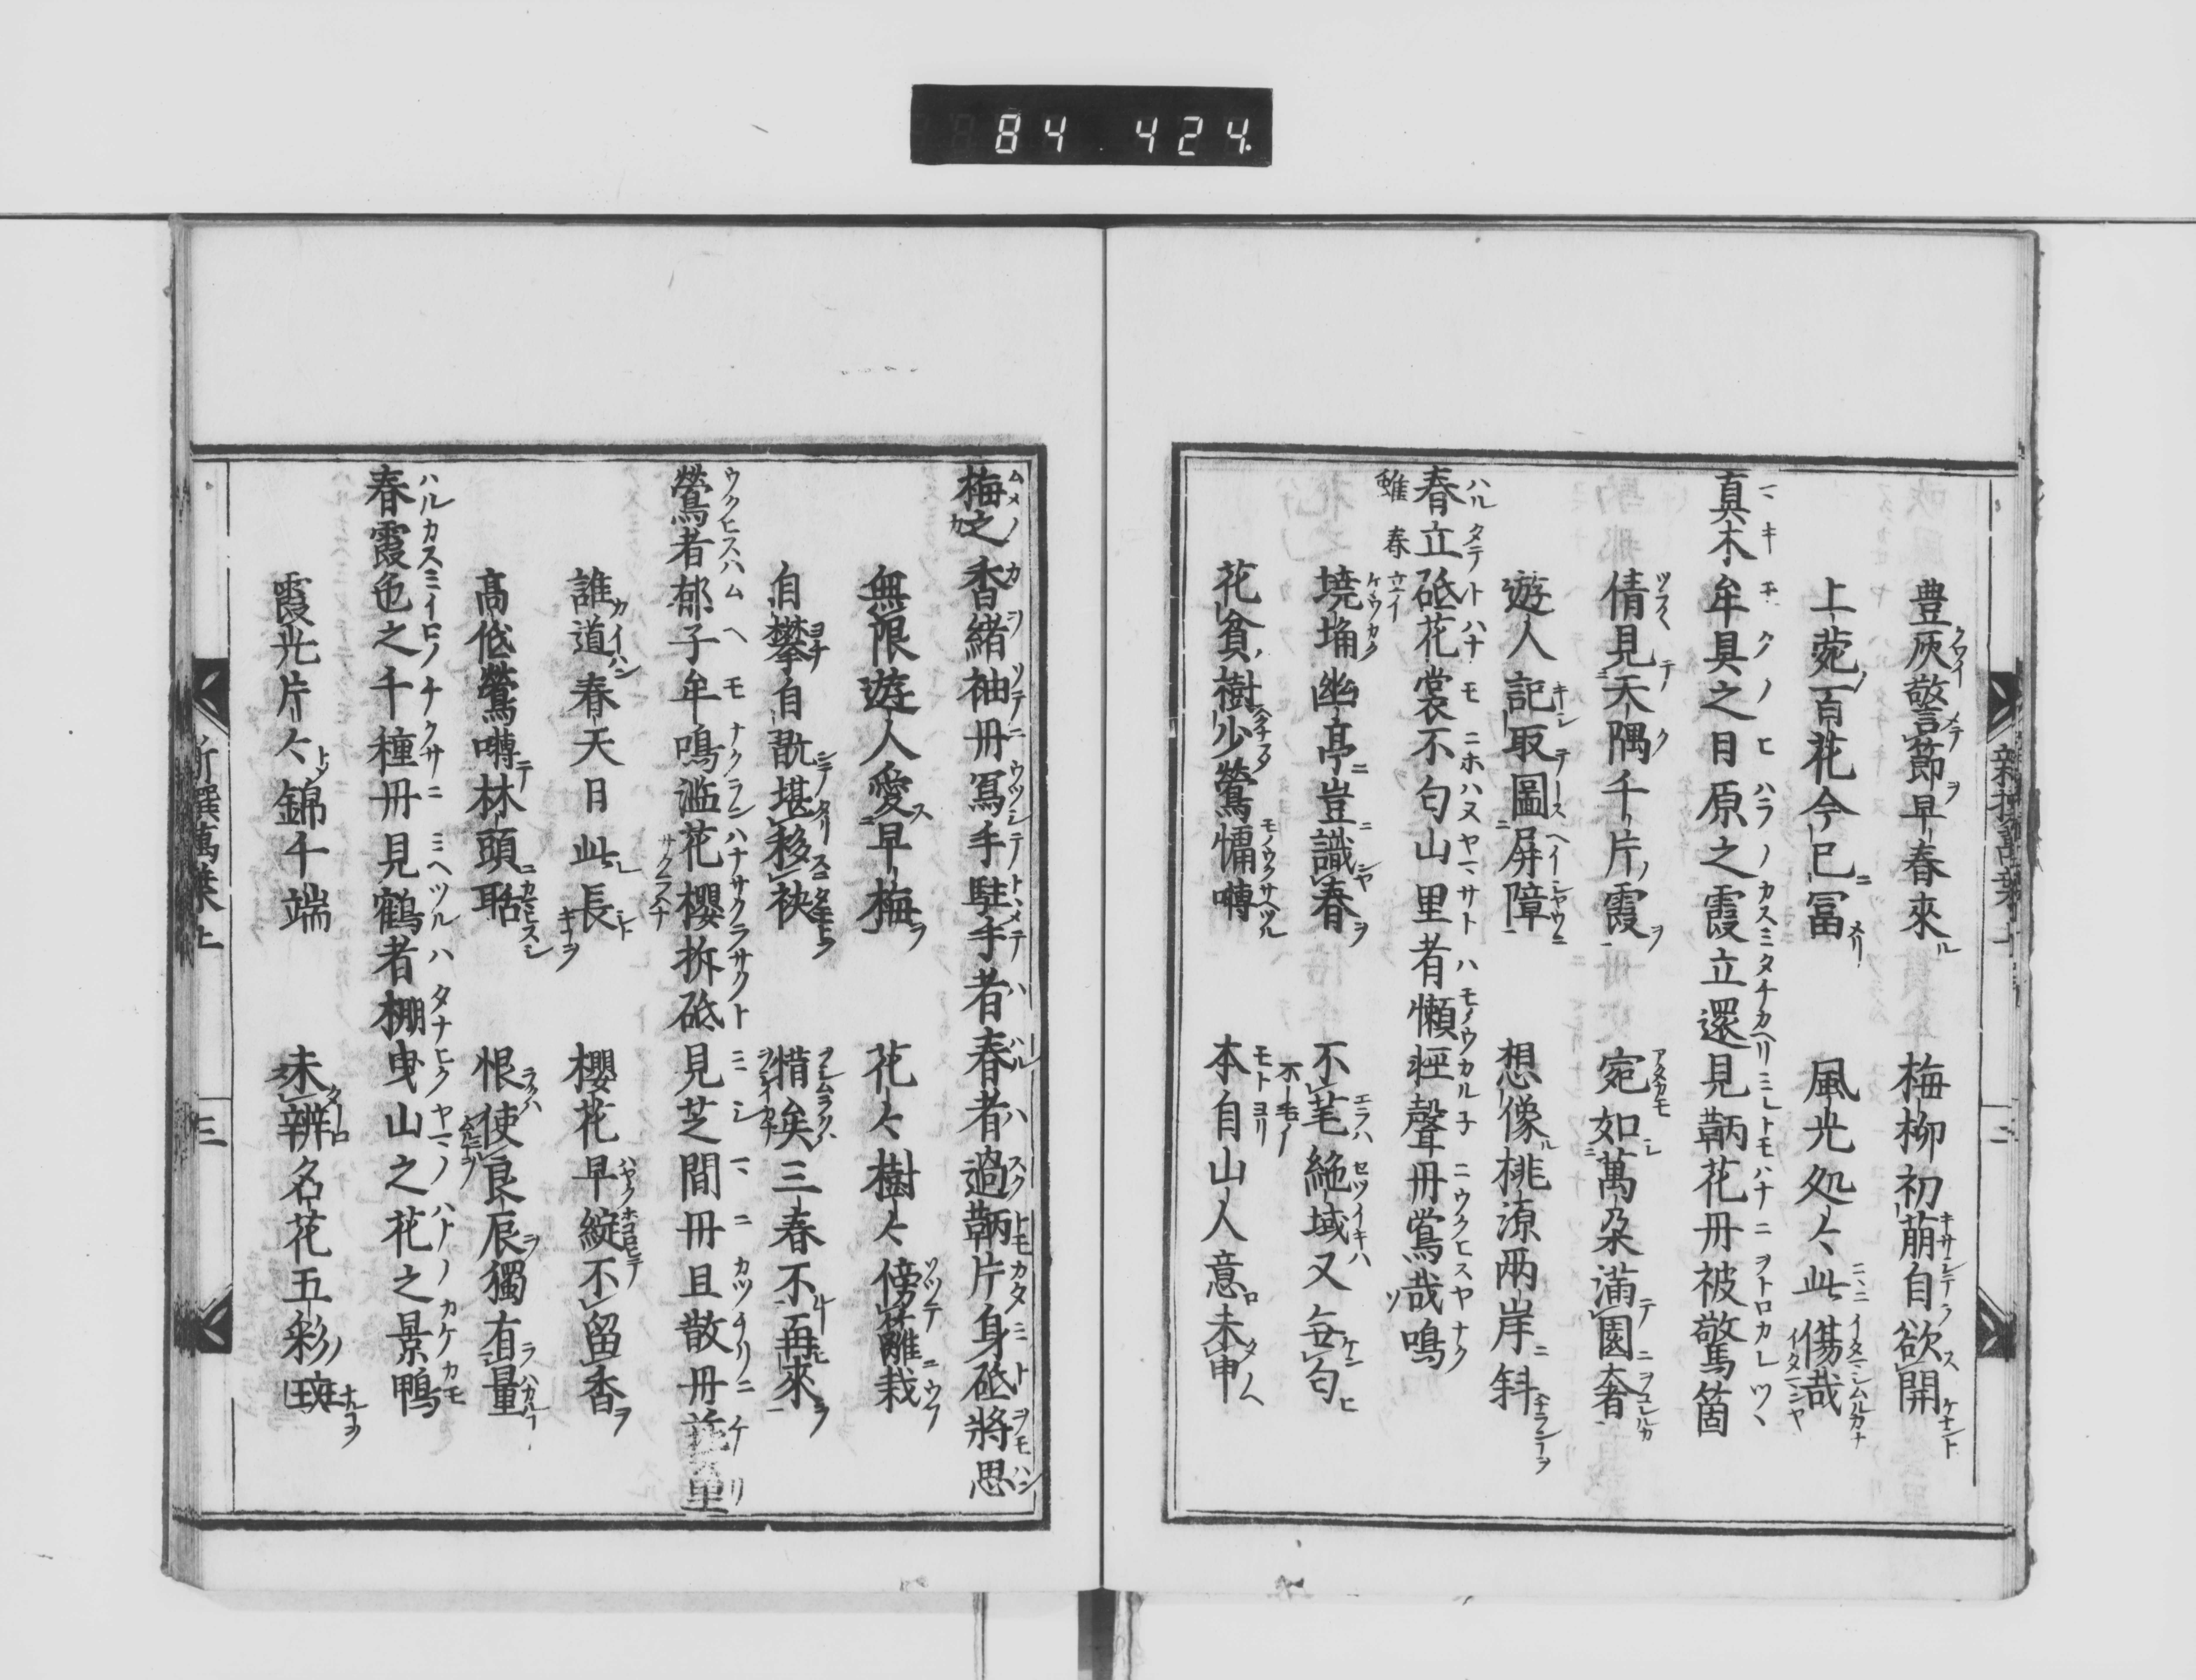 84 424.
豊灰警節早春來 梅柳初萠自欲開
上菀百花今已冨 風光処々此傷哉
真木牟具之日原之霞立還見鞆花丹被驚箇
倩見天隅千片霞 宛如萬朶満園奢
遊人記取圖屏障 想像桃源兩岸斜
春立砥花裳不匂山里者懶軽聲丹鴬哉鳴
雖春立イ
墝埆幽亭豈識春 不芼絶域又無匂
花貧樹少鶯慵囀 本自山人意未申
梅之香緒袖丹寫手駐手者春者過鞆片身砥將思
無限遊人愛早梅 花々樹々傍籬栽
自攀自翫堪移袂 惜矣三春不再來
鶯者郁子牟鳴濫花櫻拆砥見芝間丹且散丹蓙里
誰道春天日此長 櫻花早綻不留香
髙低鶯囀林頭聒 恨使良辰獨有量
春霞色之千種丹見鶴者棚曳山之花之景鴨
霞光片々錦千端 未辨名花五彩斑
新撰萬葉上 三